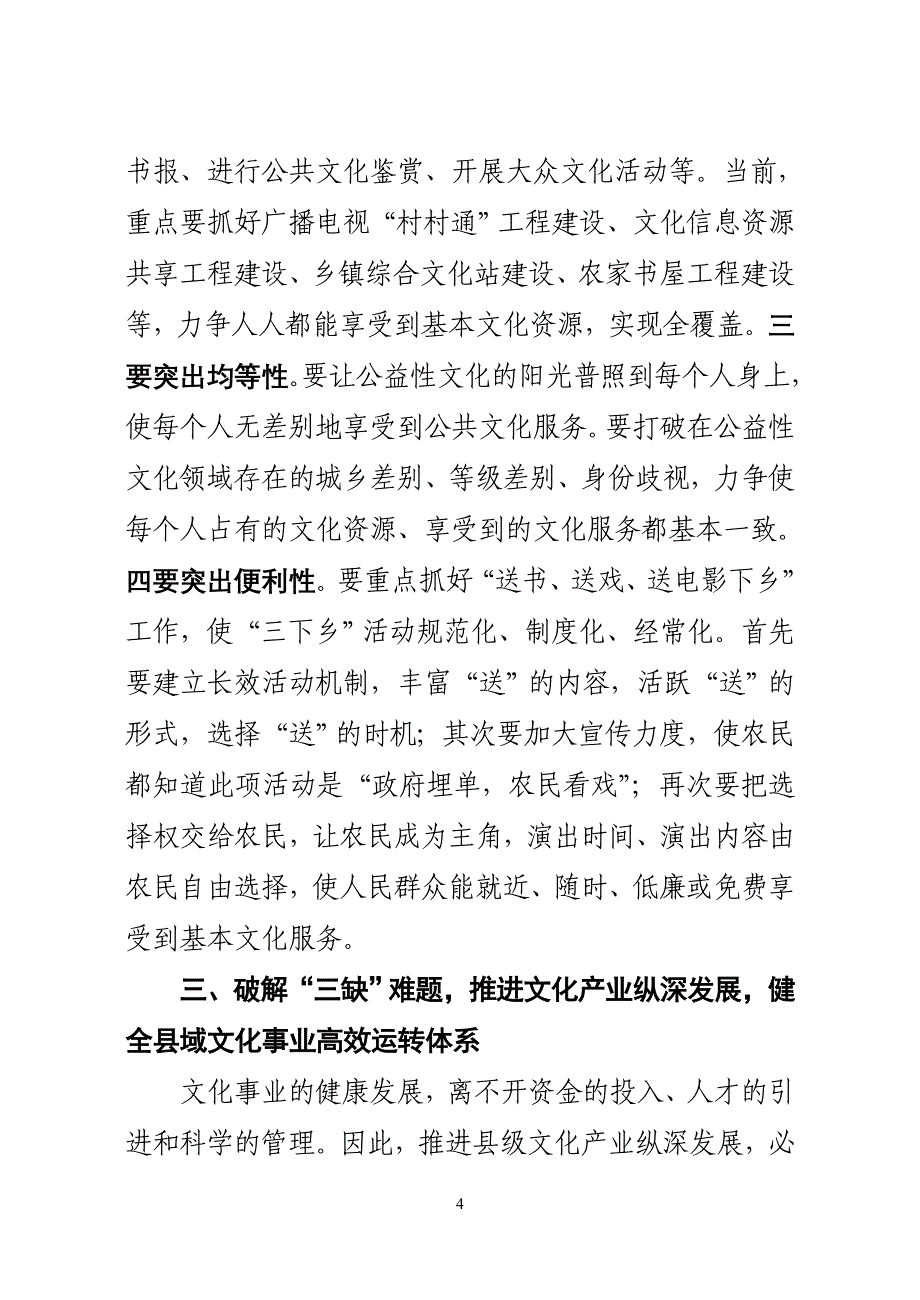 书报、进行公共文化鉴赏、开展大众文化活动等。当前，
重点要抓好广播电视“村村通”工程建设、文化信息资源
共享工程建设、乡镇综合文化站建设、农家书屋工程建设
等，力争人人都能享受到基本文化资源，实现全覆盖。三
要突出均等性。要让公益性文化的阳光普照到每个人身上，
使每个人无差别地享受到公共文化服务。要打破在公益性
文化领域存在的城乡差别、等级差别、身份歧视，力争使
每个人占有的文化资源、享受到的文化服务都基本一致。
四要突出便利性。要重点抓好“送书、送戏、送电影下乡”
工作，使“三下乡”活动规范化、制度化、经常化。首先
要建立长效活动机制，丰富“送”的内容，活跃“送”的
形式，选择“送”的时机；其次要加大宣传力度，使农民
都知道此项活动是“政府埋单，农民看戏”；再次要把选
择权交给农民，让农民成为主角，演出时间、演出内容由
农民自由选择，使人民群众能就近、随时、低廉或免费享
受到基本文化服务。
三、破解“三缺”难题，推进文化产业纵深发展，健
全县域文化事业高效运转体系
文化事业的健康发展，离不开资金的投入、人才的引
进和科学的管理。因此，推进县级文化产业纵深发展，必
4